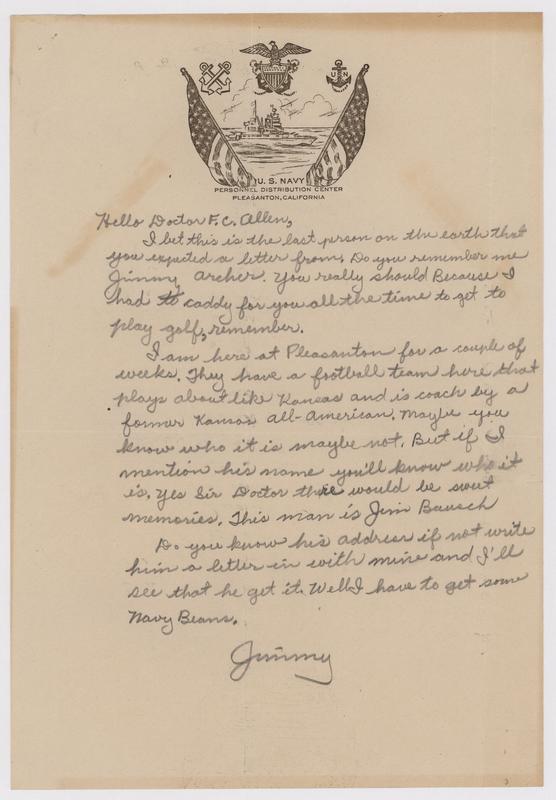 U S N
U. S. NAVY
PERSONNEL DISTRIBUTION CENTER
PLEASANTON, CALIFORNIA
Hello Doctor F. C. Allen,
I bet this is the last person on the earth that
you expected a letter from. Do you remember me
Jimmy Archer. You really should Because I
had to caddy for you all the time to get to
play golf, remember.
I am here at Pleasanton for a couple of
weeks. They have a football team here that
plays about like Kansas and is coach by a
former Kansas All-American. Maybe you
know who it is maybe not. But if I
mention his name you'll know who it
is. Yes Sir Doctor there would be sweet
memories. This man is Jim Bausch
Do you know his address if not write
him a letter in with mine and I'll
see that he get it. Well I have to get some
Navy Beans.
Jimmy